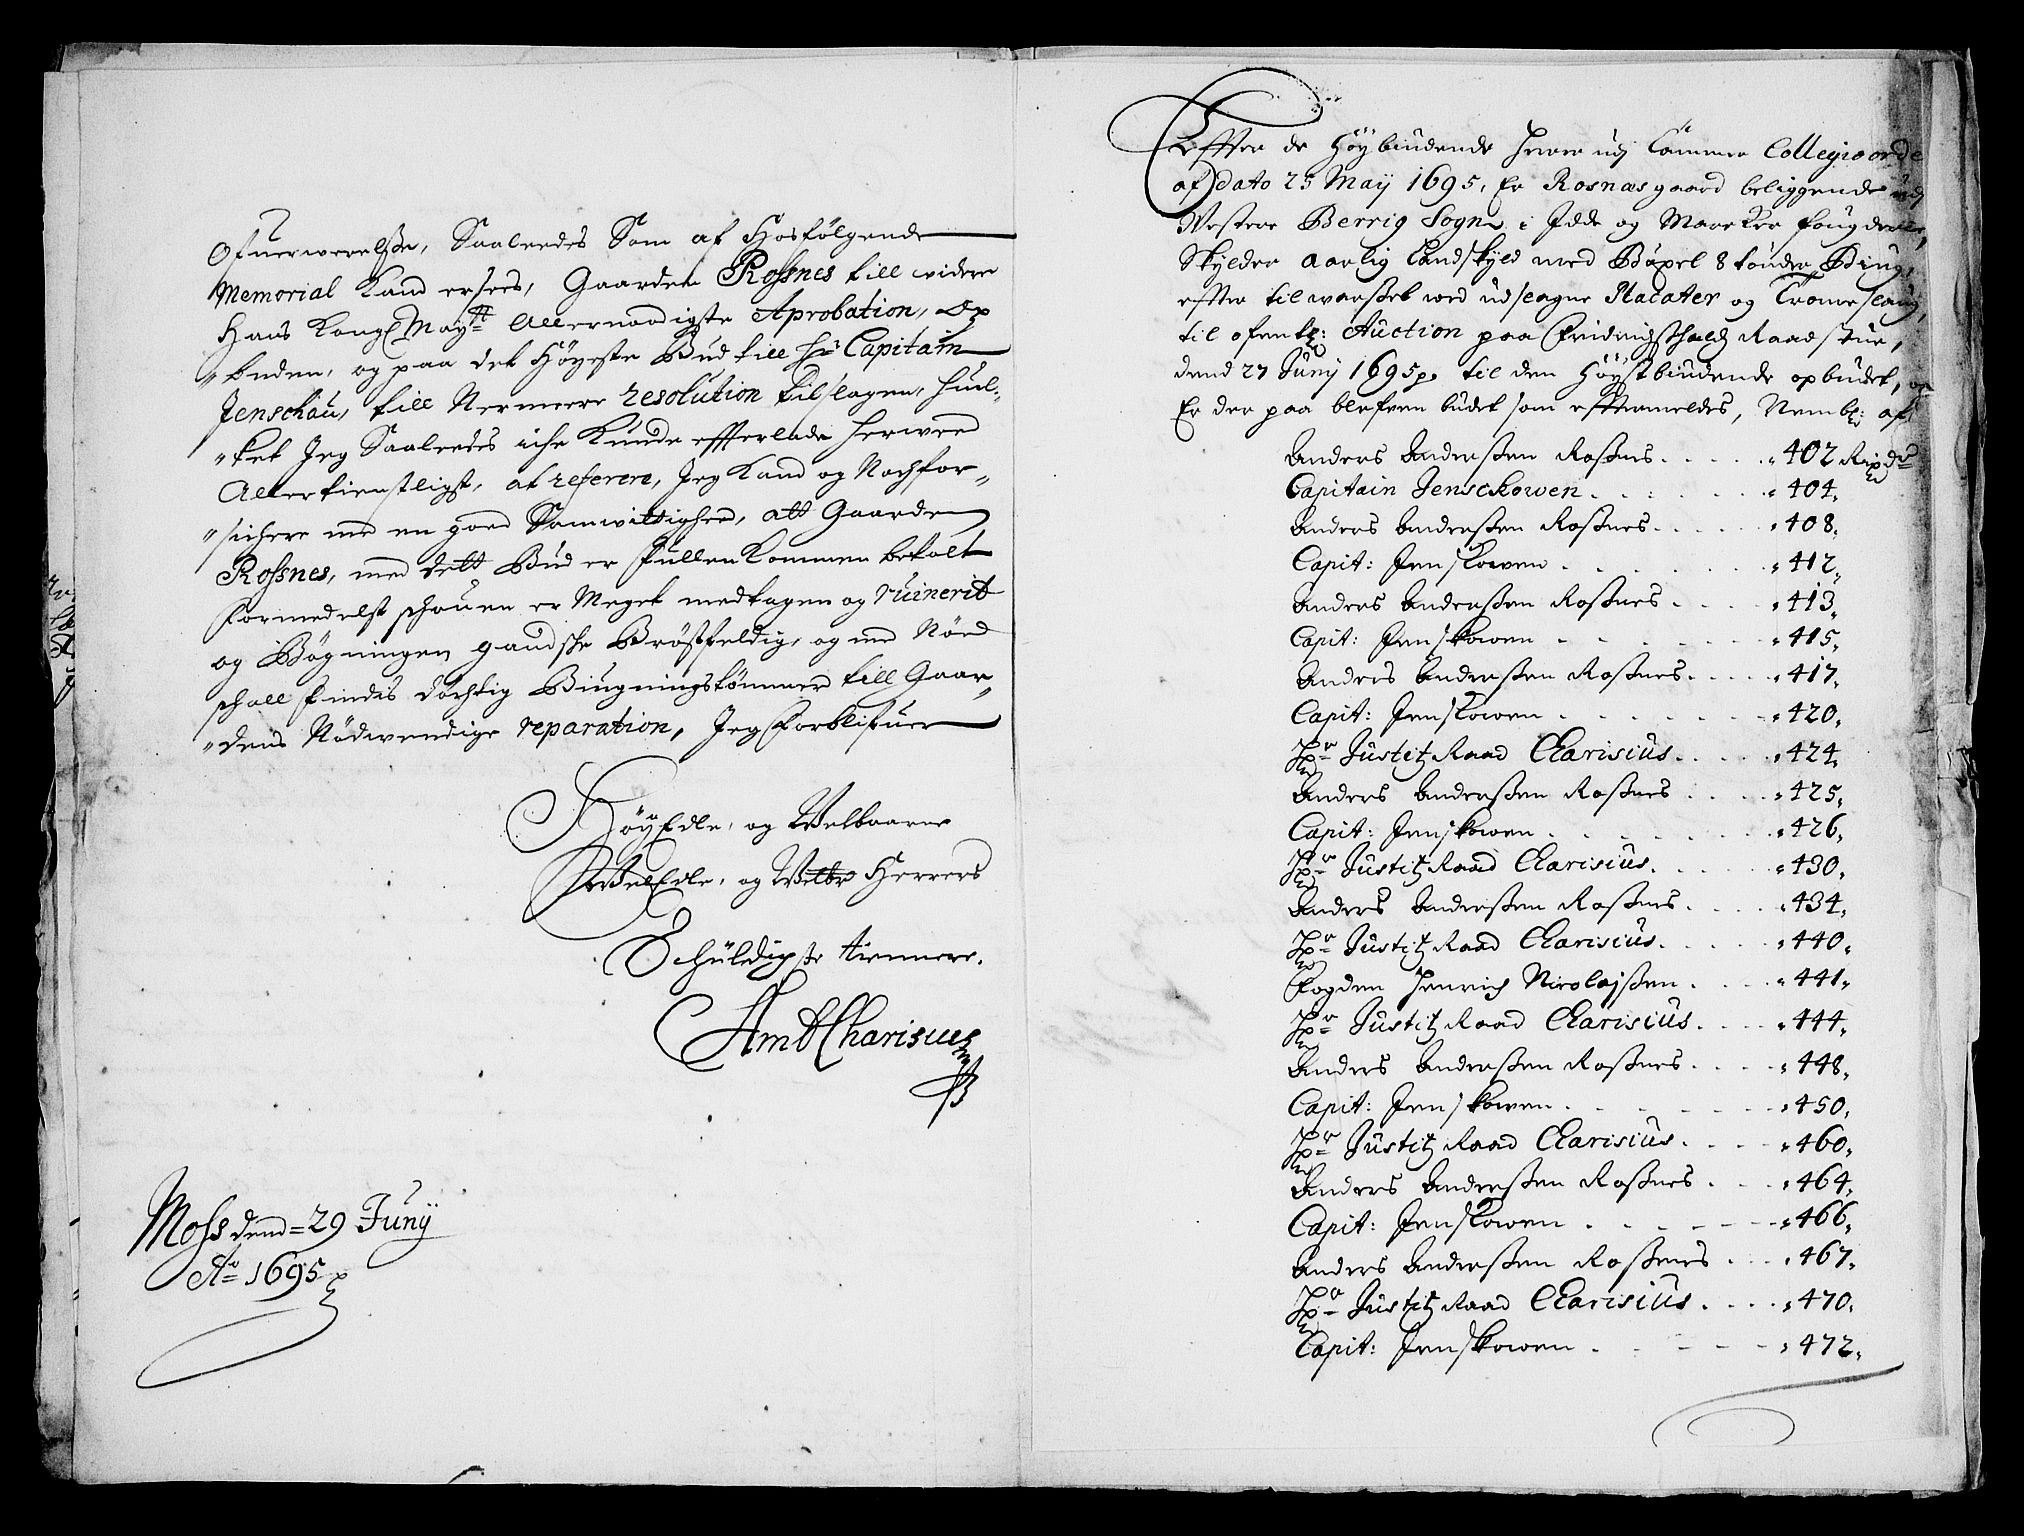 Ofuerwerelsse, Saaleedes Som af Hosfölgende
Memorial Kand ersees, Gaarden Rossnes till videre
Hans Kongl Maytt: Allernaadigste Aprobation, Op
"buden, og paa det Höyeste Bud till hr: Capitain
Jenschau, till Nermere resolution tilslagen, huil-
"ket Jeg Saaleedes iche Kunde effterlade herwed
Allertienstligst, at referere, Jeg Kand og Nochfor-
"sichere med en goed Samwittighed, att Gaarden
Rossnes, med dett Bud er fullenKommen betalt
formedelst schouen er Meget medtagen og ruinerit
og Bögningen gandsche Bröstfeldig, og med Nöed
schall findes döchtig Biugningstömmer till Gaar-
"dens Nödwendige reparation, Jeg Forblifuer
HöyEdle, og Welbaarne
WelEdle, og Welbr Herrers
Schüldigste tiennere.
Amb Charisius
Moss dend = 29 Junÿ
Ao 1695
Effter de Höybiudende Herrer udj Cammer Collegio orde
af dato 25 Maÿ 1695, Er Rosnæsgaard beliggende udj
Westere Berrig Sogn i Idde og Marcker fougderie,
Skylder aarlig Landskyld med Böxel 8 tönder Biug,
effter tilwarslet ved udslagne Placater og Tromeslaug,
til ofentl: Auction paa Friderichshalds Raadstue,
dend 27 Junÿ 1695, til den Höystbiudende opbudet, og
Er der paa blefven budet som effttermeldes, Nembl: af
Anders Andersen Rosnes . . . . 402 Rixdr
Capitain Jensckowen . . . . 404,
Anders Andersen Rosnes . . . . 408,
Capit: Jenskowen . . . . 412,
Anders Andersen Rosnes . . . . 413,
Capit: Jenskowen . . . . 415,
Anders Andersen Rosnes . . . . 417,
Capit: Jenskowen . . . . 420,
Hr Justitz Raad Charisius . . . . 424,
Anders Andersen Rosnes . . . . 425,
Capit: Jenskowen . . . . 426,
Hr Justitz Raad Charisius . . . . 430,
Anders Andersen Rosnes . . . . 434,
Hr Justitz Raad Charisius . . . . 440,
Fogden Henrich Nicolajsen . . . . 441,
Hr Justitz Raad Charisius . . . . 444,
Anders Andersen Rosnes . . . . 448,
Capit: Jenskowen . . . . 450,
Hr Justitz Raad Charisius . . . . 460,
Anders Andersen Rosnes . . . . 464,
Capit: Jenskowen . . . . 466,
Anders Andersen Rosnes . . . . 467,
Hr Justitz Raad Charisius . . . . 470,
Capit: Jenskowen . . . . 472,